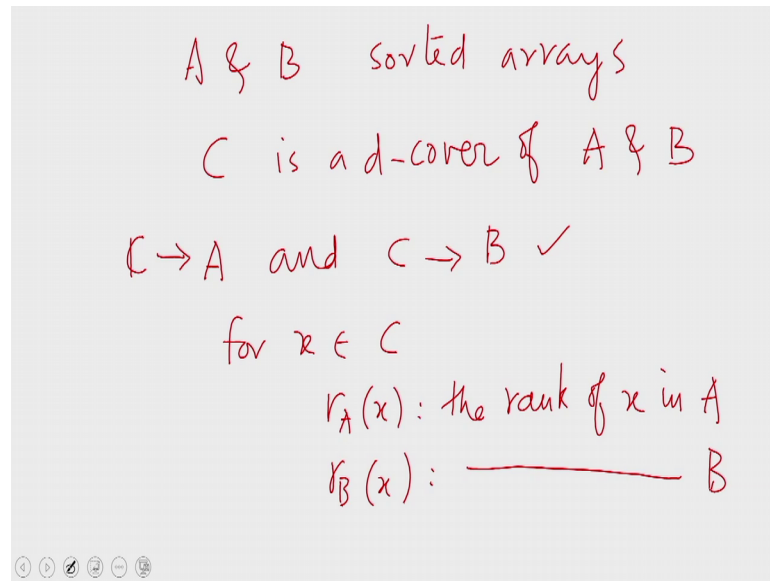 A & B sorted arrays
C is a d-cover of A & B
C → A and C → B ✓
for x ∈ C
r_A(x): the rank of x in A
r_B(x): ———— B